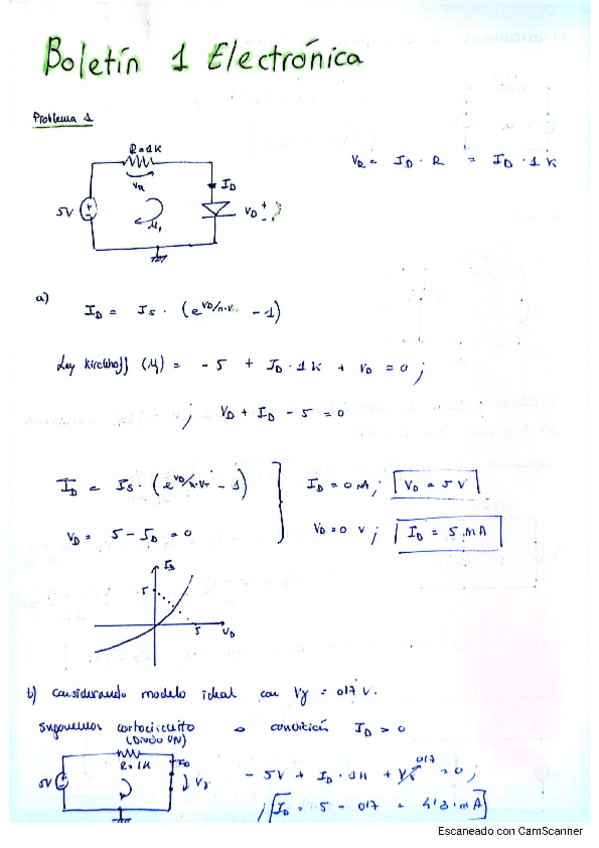 Boletín 1 Electrónica
Problema 1
R=1K
VR = ID · R = ID · 1K
VR
ID
5V
VD + -
M1
a)
ID = IS · (e^VD/n·VT - 1)
Ley Kirchhoff (M) = - 5 + ID · 1K + VD = 0 ;
; VD + ID - 5 = 0
ID = IS · (e^VD/n·VT - 1)
ID = 0 mA ; VD = 5 V
VD = 5 - ID = 0
VD = 0 V ; ID = 5 mA
ID
5
5
VD
b) Considerando modelo ideal con Vγ = 0'7 V.
Suponemos cortocircuito → condición ID > 0
(DIODO ON)
R=1K
ID
5V
Vγ
0'7
- 5V + ID · 1K + Vγ = 0 ;
; ID = 5 - 0'7 = 4'3 · mA
Escaneado con CamScanner